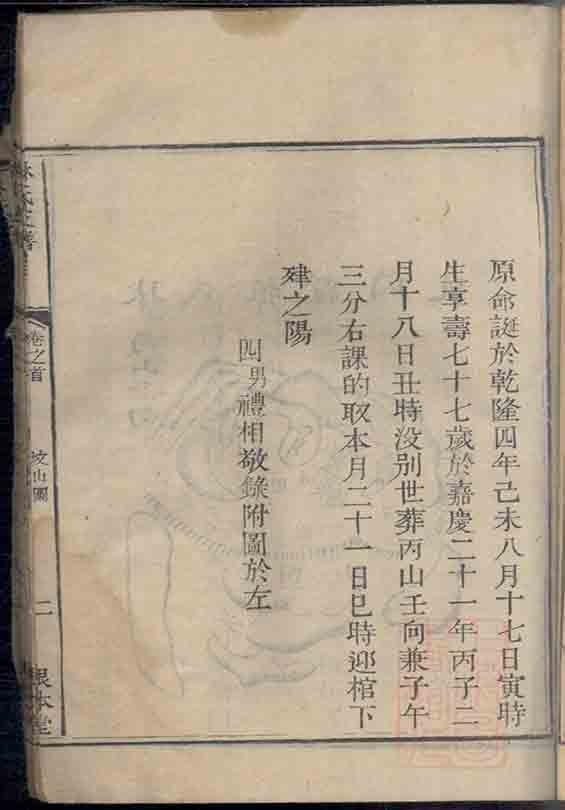 原命誕於乾隆四年己未八月十七日寅時
生享壽七十七歲於嘉慶二十一年丙子二
月十八日丑時没别世葬丙山壬向兼子午
三分右課的取本月二十一日巳時迎棺下
肂之陽
四男禮相敬錄附圖於左
林氏支譜
卷之首
坟山圖
二
根本堂